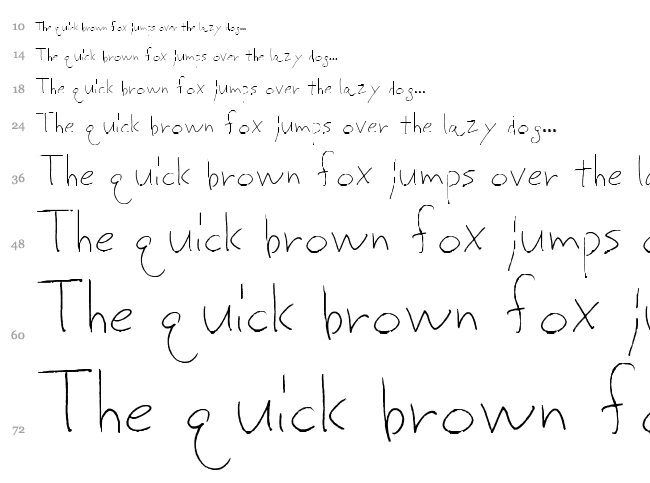 10 The quick brown fox jumps over the lazy dog...
14 The quick brown fox jumps over the lazy dog...
18 The quick brown fox jumps over the lazy dog...
24 The quick brown fox jumps over the lazy dog...
36 The quick brown fox jumps over the la
48 The quick brown fox jumps o
60 The quick brown fox ju
72 The quick brown fo